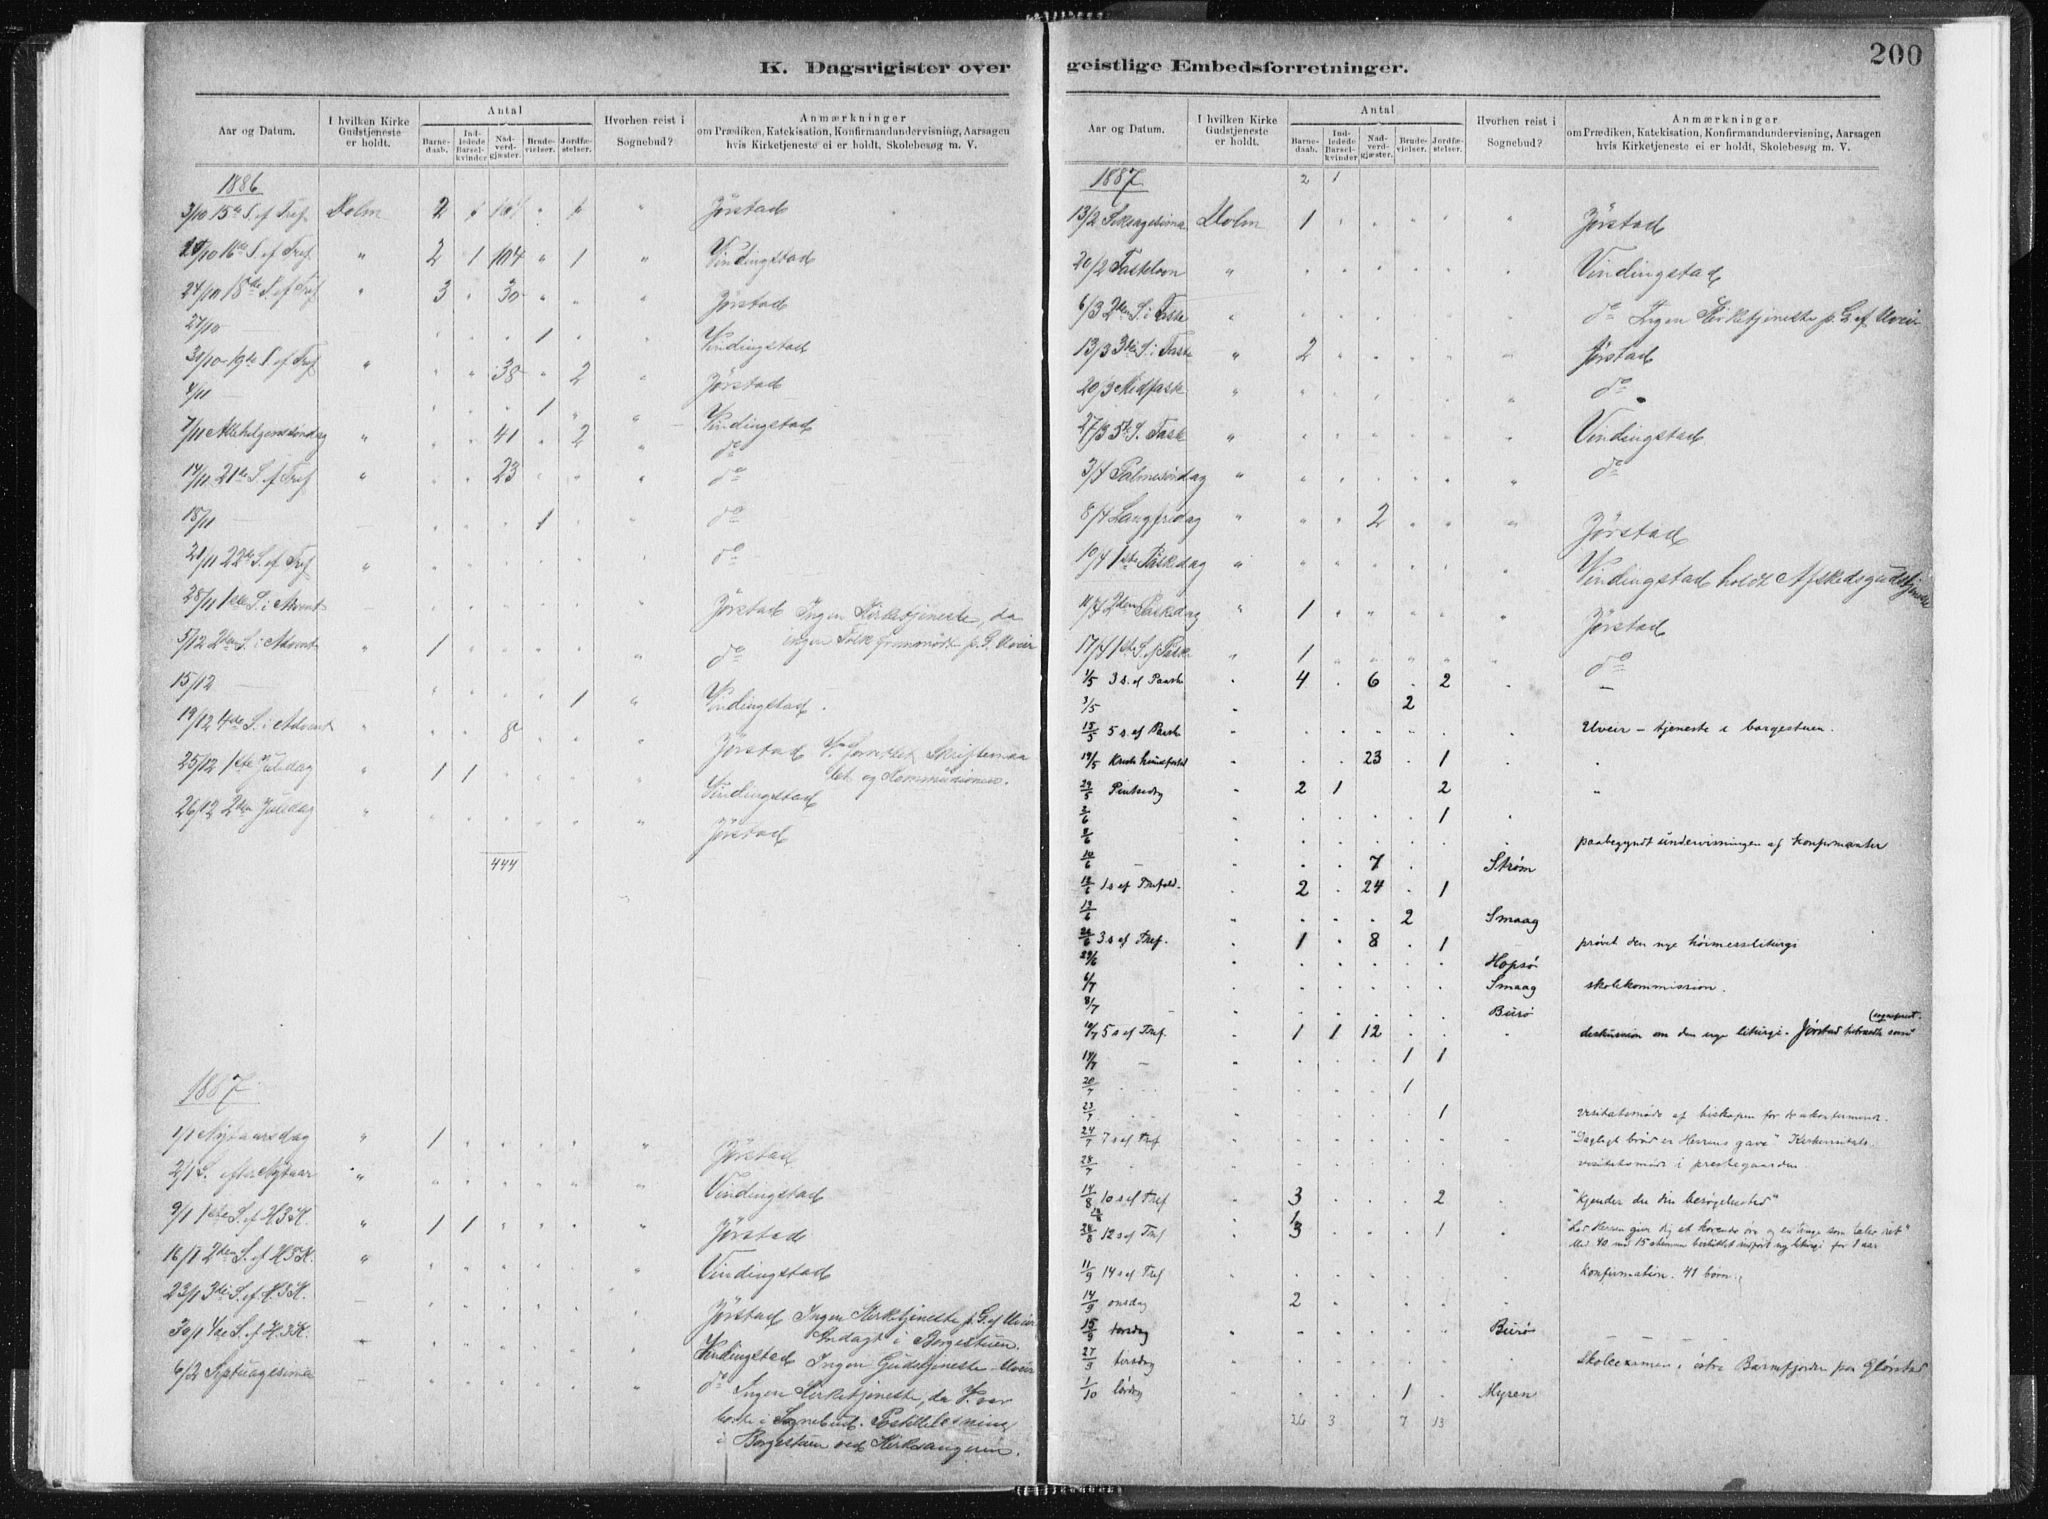 K. Dagsrigister over
Aar og Datum. I hvilken Kirke Gudstjeneste er holdt. Antal Barnedaab. Indledede Barselkvinder Nadverdgjæster. Brudevielser. Jordfæstelser. Hvorhen reist i Sognebud? Anmærkninger om Prædiken, Katekisation, Konfirmandundervisning, Aarsagen hvis Kirketjeneste ei er holdt, Skolebesøg m. V.
1886
3/10 15de S. ef Tref. Dolm 2 " Jørstad
10/10 16de S. ef Tref. " 2 1 104 " 1 " Vindingstad
24/10 18de S. ef Tref " 3 " 30 " " " Jørstad
27/10 — " " " 1 " " Vindingstad
31/10 19de S. ef Tref " " " 38 " 2 " Jørstad
4/11 — " " " 1 " " Vindingstad
7/11 Allehelgenssøndag " " " 41 " 2 " do
14/11 21de S. ef Tref " " " 23 " " " do
18/11 — " " " 1 " " do
21/11 22de S. ef Tref " " " " " " do
28/11 1ste S. i Advent — " " " " " " Jørstad Ingen Kirketjeneste, da
ingen Folk fremmødt p. G. Uveir
5/12 2den S. i Advent " 1 " " " " " do
15/12 — " " " " 1 " Vindingstad.
19/12 4de S. i Advent " " " 8 " " " Jørstad V. forrettet Skriftemaa
let og Kommunionen.
25/12 1ste Juledag " 1 1 " " " " Vindingstad
26/12 2den Juledag " " " " " " " Jørstad
444
1887
1/1 Nytaarsdag " 1 " " " " " Jørstad
2/1 S. efter Nytaar " " " " " " " Vindingstad
9/1 1ste S. ef H3K. " 1 1 " " " " Jørstad
16/1 2den S. ef H3K. " " " " " " " Vindingstad
23/1 3die S. ef H3K. — " " " " " " Jørstad Ingen Kirketjeneste p. G. af Uveir
Andagt i Borgestuen.
30/1 4de S. ef H3K. — " " " " " " Vindingstad Ingen Gudstjeneste Uveir
6/2 Septuagesima — " " " " " " do Ingen Kirketjeneste, da V. var
borte i Sognebud. Postillelesning
i Borgestuen ved Kirkesangeren.
geistlige Embedsforretninger.
200
Aar og Datum. I hvilken Kirke Gudstjeneste er holdt. Antal Barnedaab. Indledede Barselkvinder Nadverdgjæster. Brudevielser. Jordfæstelser. Hvorhen reist i Sognebud? Anmærkninger om Prædiken, Katekisation, Konfirmandundervisning, Aarsagen hvis Kirketjeneste ei er holdt, Skolebesøg m. V.
1887 2 1
13/2 Seksagesima Dolm 1 " " " " " Jørstad
20/2 Fastelavn " " " " " " " Vindingstad
6/3 2den S. i Faste " " " " " " do Ingen Kirketjeneste p. G. af Uveir
13/3 3die S. i Faste " 2 " " " " " Jørstad
20/3 Midfaste " " " " " " " do
27/3 5te S. Faste " " " " " " " Vindingstad
3/4 Palmesøndag " " " " " " " do
8/4 Langfredag " " " 2 " " " Jørstad
10/4 1ste Paaskedag " " " " " " " Vindingstad holdt Afskedsgudstjeneste
11/4 2den Paaskedag " 1 " " " " " Jørstad
17/4 1ste S. ef Paaske " 1 " " " " " do
1/5 3 s. ef Paaske " 4 . 6 . 2 . —
3/5 " 2
15/5 5 s. ef Paaske " . . . . . . Uveir – tjeneste i borgestuen.
19/5 Kristi himmelfartsd " . . 23 . 1 . "
29/5 Pintsedag " 2 1 . . 2 "
2/6 " . . . . 1 .
8/6 " . . . . . paabegyndt undervisningen af konfirmanter
10/6 – " . . 7 . . Strøm
12/6 1 s ef Trefold. . 2 . 24 . 1
13/6 " . . . 2 . Smaag
26/6 3 s ef Tref. " 1 . 8 . 1 prøvet den nye høimesseliturgi
29/6 " . . . . . Hopsø
6/7 " . . . . . Smaag skolekommission.
8/7 " . . . . . Burø
10/7 5 s ef Tref. " 1 1 12 . . " diskussion om den nye liturgi. Jørstad
14/7 – " . . . 1 1
20/7 " . . . 1
23/7 " . . . . 1 visitatsmøde af biskopen
24/7 7 s ef Tref " . . . . . "Dagligt brød er Herrens gave" Kirkevisitats.
28/7 " . . . . . visitatsmøde i prestegaarden.
14/8 10 s ef Tref " 3 . . . 2 . "Kjender du din besøgelsestid"
28/8 12 s ef Tref . 3 . . . 1 . "Lad Herren give dig et hørende øre og en tunge som taler ret"
Med 40 mod 15 stemmer besluttet indført ny liturgi for 1 aar
11/9 14 s ef Tref . . . . . . . konfirmation. 41 børn.
14/9 onsdag . 2 . . . . .
15/9 torsdag " . . . . . Burø
27/9 tirsdag . . . . . . " Skoleexamen i østre Barmfjorden paa Glørstad
1/10 lørdag . . . . 1 . Myren
26 3 7 13